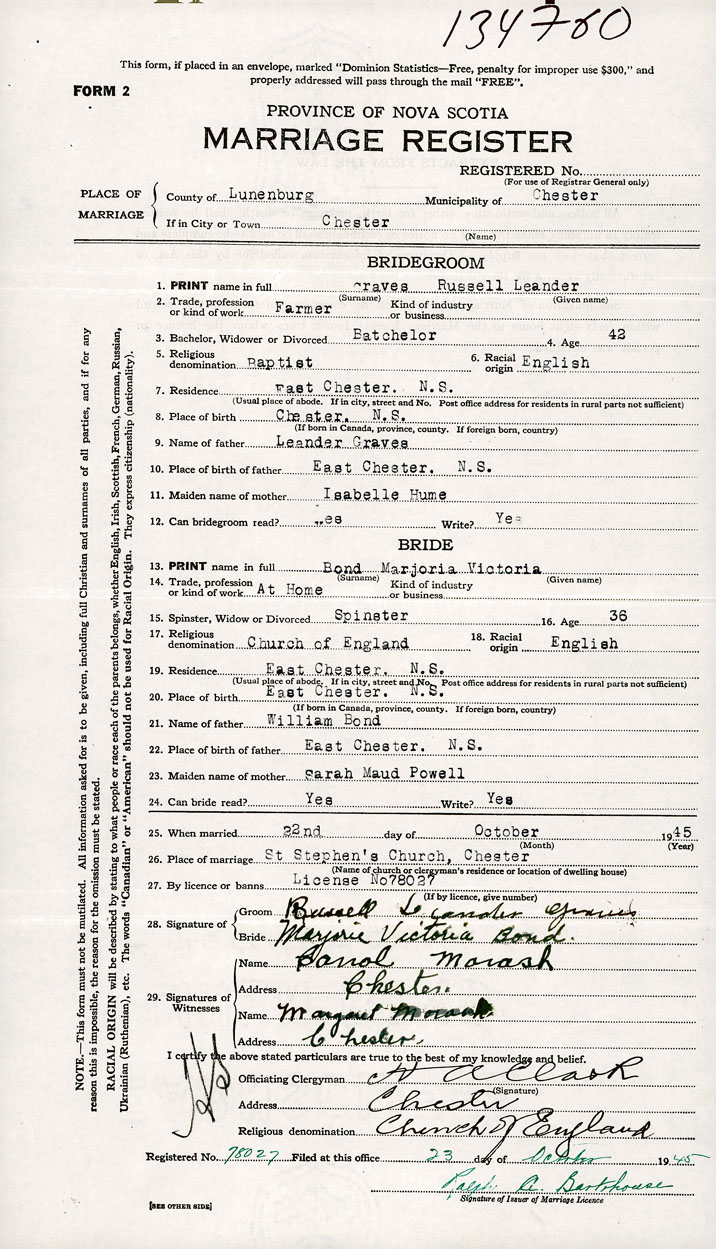 134760
This form, if placed in an envelope, marked "Dominion Statistics—Free, penalty for improper use $300," and
properly addressed will pass through the mail "FREE".
FORM 2
PROVINCE OF NOVA SCOTIA
MARRIAGE REGISTER
REGISTERED No.
(For use of Registrar General only)
PLACE OF MARRIAGE
County of Lunenburg Municipality of Chester
If in City or Town Chester
(Name)
BRIDEGROOM
1. PRINT name in full Graves Russell Leander
(Surname) (Given name)
2. Trade, profession or kind of work Farmer Kind of industry or business
3. Bachelor, Widower or Divorced Batchelor 4. Age 42
5. Religious denomination Baptist 6. Racial origin English
7. Residence East Chester. N.S.
(Usual place of abode. If in city, street and No. Post office address for residents in rural parts not sufficient)
8. Place of birth Chester. N.S.
(If born in Canada, province, county. If foreign born, country)
9. Name of father Leander Graves
10. Place of birth of father East Chester. N.S.
11. Maiden name of mother Isabelle Hume
12. Can bridegroom read? Yes Write? Yes
BRIDE
13. PRINT name in full Bond Marjoria Victoria
(Surname) (Given name)
14. Trade, profession or kind of work At Home Kind of industry or business
15. Spinster, Widow or Divorced Spinster 16. Age 36
17. Religious denomination Church of England 18. Racial origin English
19. Residence East Chester. N.S.
(Usual place of abode. If in city, street and No. Post office address for residents in rural parts not sufficient)
20. Place of birth East Chester. N.S.
(If born in Canada, province, county. If foreign born, country)
21. Name of father William Bond
22. Place of birth of father East Chester. N.S.
23. Maiden name of mother Sarah Maud Powell
24. Can bride read? Yes Write? Yes
25. When married 22nd day of October 1945
(Month) (Year)
26. Place of marriage St Stephen's Church, Chester
(Name of church or clergyman's residence or location of dwelling house)
27. By licence or banns License No78027
(If by licence, give number)
28. Signature of
Groom Russell Leander Graves
Bride Marjorie Victoria Bond.
29. Signatures of Witnesses
Name Carrol Morash
Address Chester.
Name Margaret Morash
Address Chester.
I certify the above stated particulars are true to the best of my knowledge and belief.
Officiating Clergyman
(Signature)
Address Chester
Religious denomination Church of England
Registered No. 78027 Filed at this office 23 day of October 1945
Ralph A. Barkhouse
Signature of Issuer of Marriage Licence
[SEE OTHER SIDE]
NOTE.—This form must not be mutilated. All information asked for is to be given, including full Christian and surnames of all parties, and if for any
reason this is impossible, the reason for the omission must be stated.
RACIAL ORIGIN will be described by stating to what people or race each of the parents belongs, whether English, Irish, Scottish, French, German, Russian,
Ukrainian (Ruthenian), etc. The words "Canadian" or "American" should not be used for Racial Origin. They express citizenship (nationality).